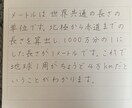 メートルは世界共通の長さの
単位です。北極から赤道までの
長さを算出し、1000万分の1に
した長さが1メートルです。これで
地球1周がちょうど4万kmだと
いうことがわかります。